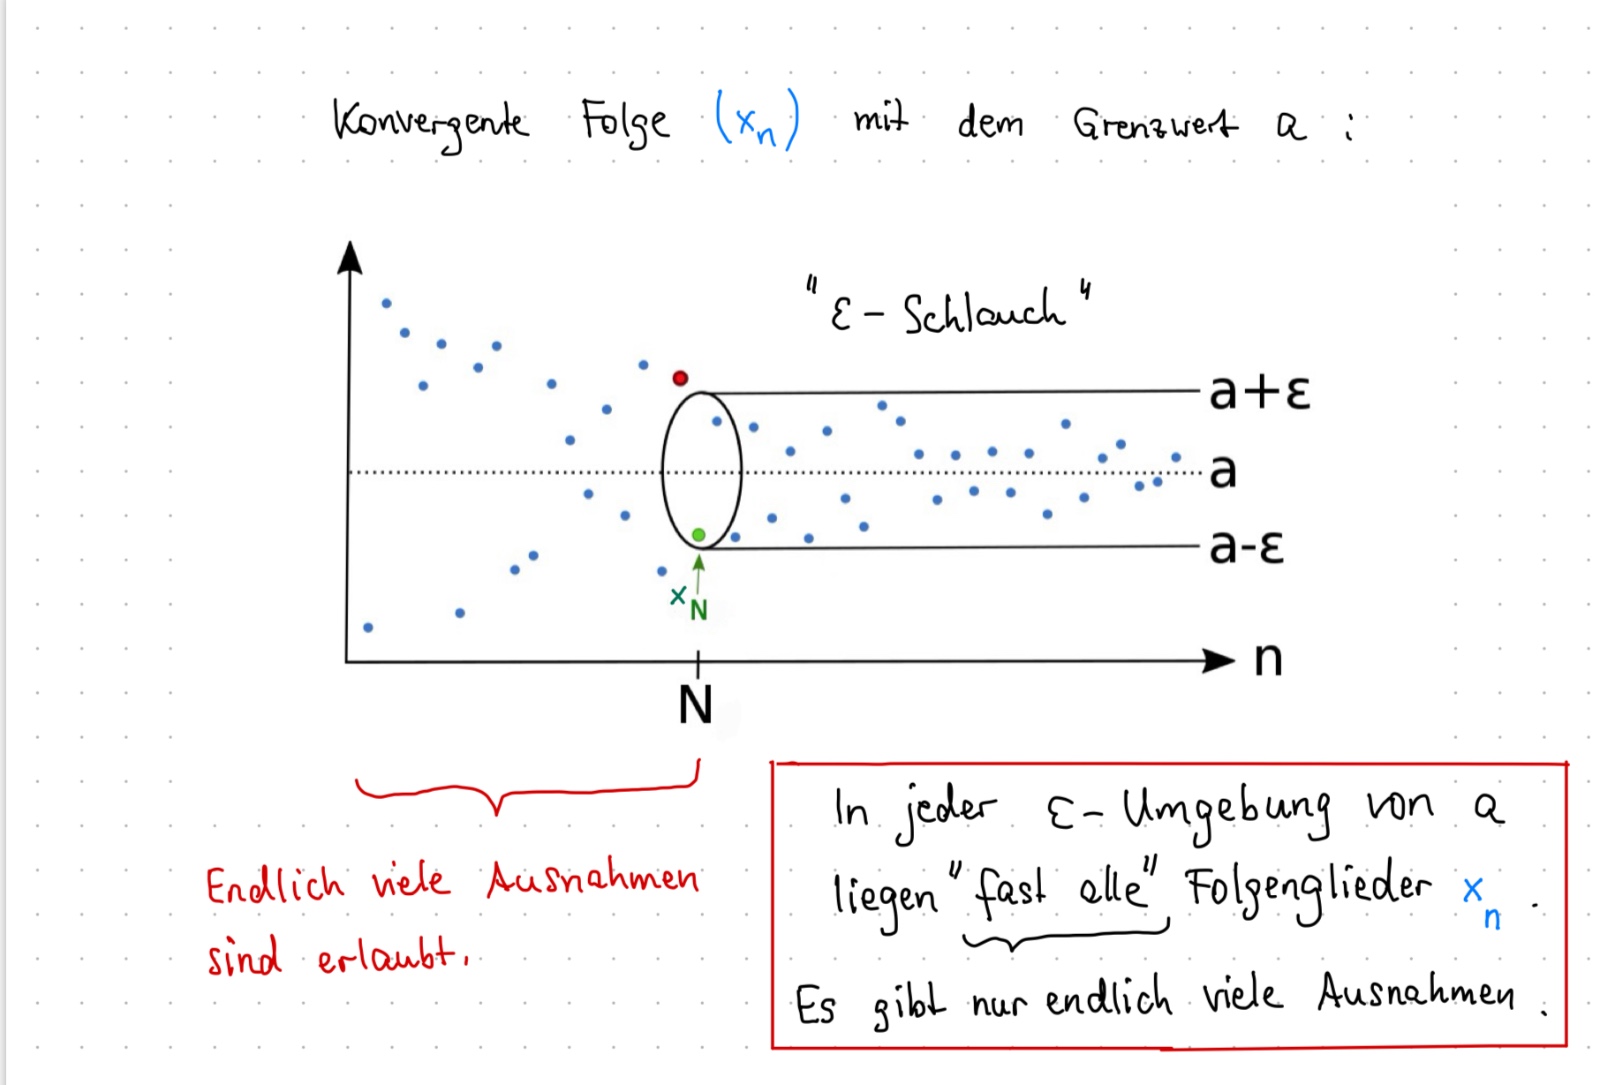 Konvergente Folge (xn) mit dem Grenzwert a :
"ε - Schlauch"
a+ε
a
a-ε
x N
n
N
Endlich viele Ausnahmen
sind erlaubt.
In jeder ε - Umgebung von a
liegen "fast alle" Folgenglieder xn .
Es gibt nur endlich viele Ausnahmen .